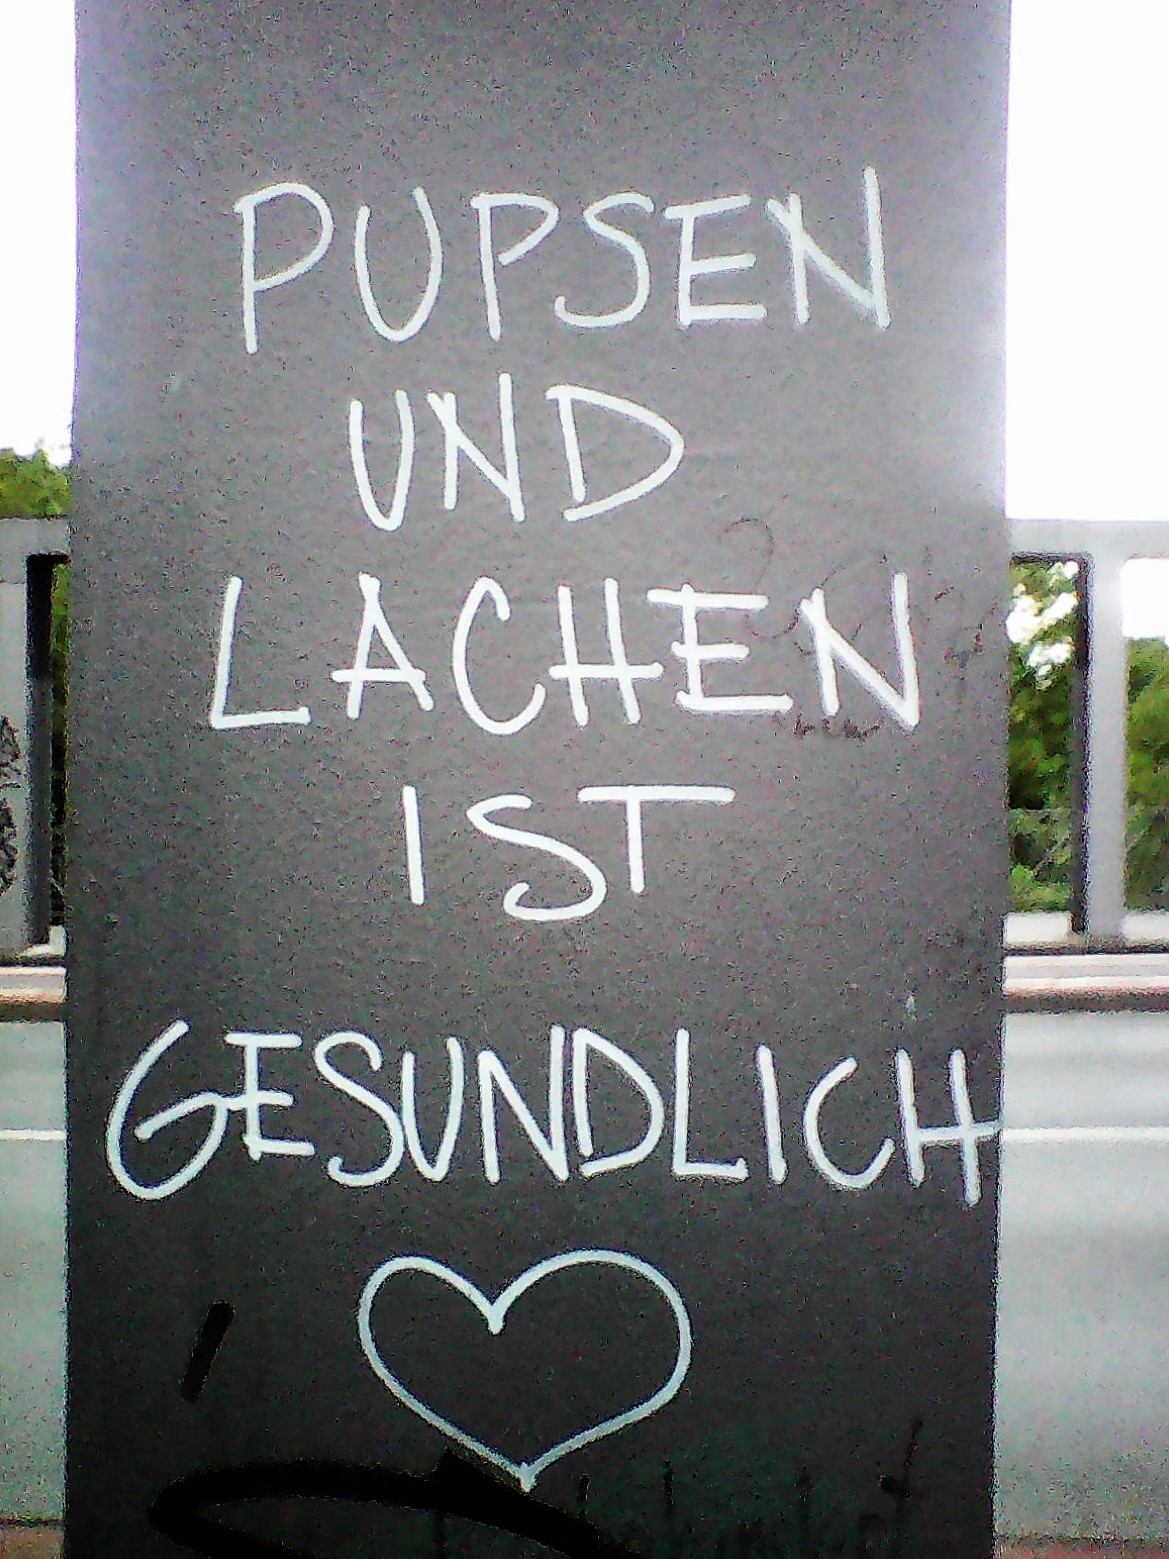 PUPSEN
UND
LACHEN
IST
GESUNDLICH